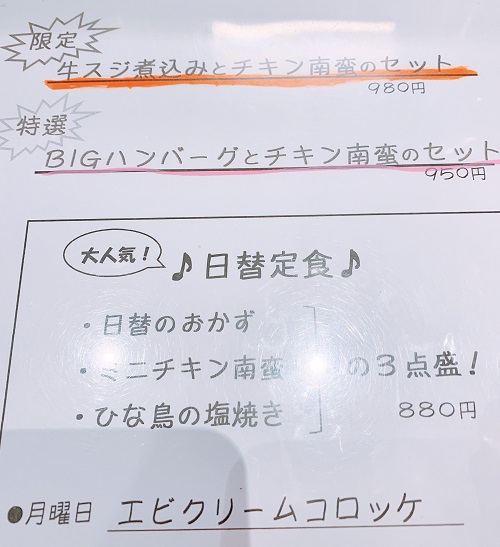 限定
牛スジ煮込みとチキン南蛮のセット
980円
特選
BIGハンバーグとチキン南蛮のセット
950円
大人気！
♪日替定食♪
・日替のおかず
・ミニチキン南蛮 の3点盛！
・ひな鳥の塩焼き
880円
●月曜日 エビクリームコロッケ